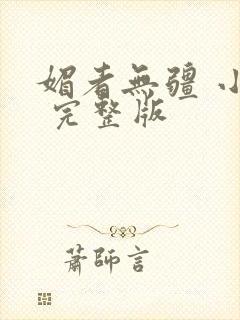 媚者無疆 小
完整版
蕭師言